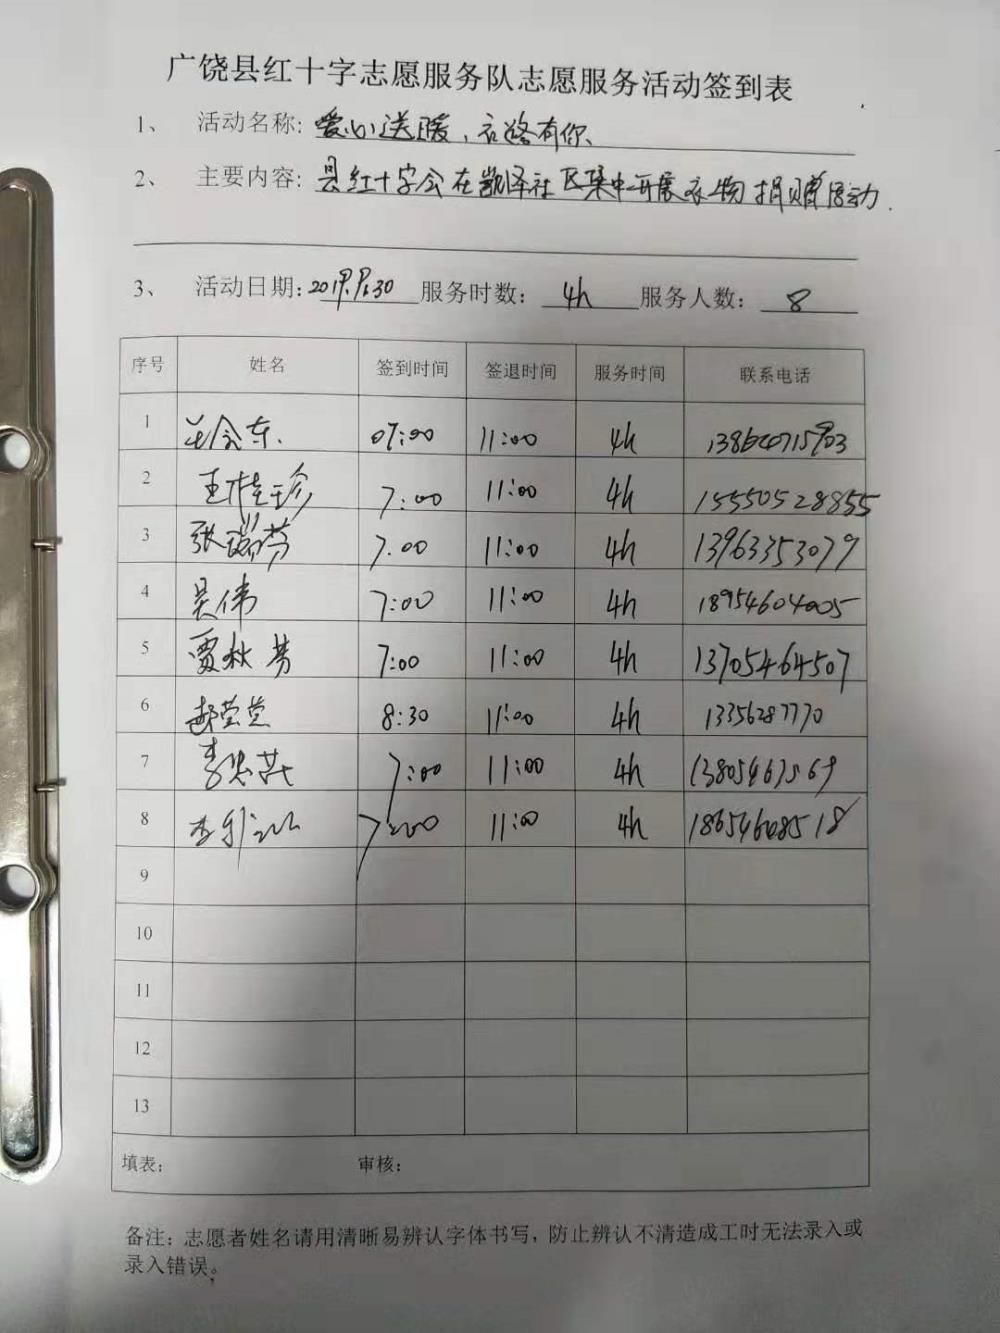 广饶县红十字志愿服务队志愿服务活动签到表
1、 活动名称: 爱心送暖、衣路有你
2、 主要内容: 县红十字会在凯泽社区集中开展衣物捐赠活动.
3、 活动日期: 服务时数: 4h 服务人数: 8
序号 姓名 签到时间 签退时间 服务时间 联系电话
1 07:00 11:00 4h
2 王桂珍 7:00 11:00 4h 15550528855
3 张瑞芬 7.00 11:00 4h 13963353079
4 吴伟 7:00 11:00 4h 18954604005
5 贾秋芳 7:00 11:00 4h 13705464507
6 8:30 11:00 4h 13356287770
7 7:00 11:00 4h
8 7:00 11:00 4h 18654608518
9
10
11
12
13
填表: 审核:
备注: 志愿者姓名请用清晰易辨认字体书写, 防止辨认不清造成工时无法录入或
录入错误。